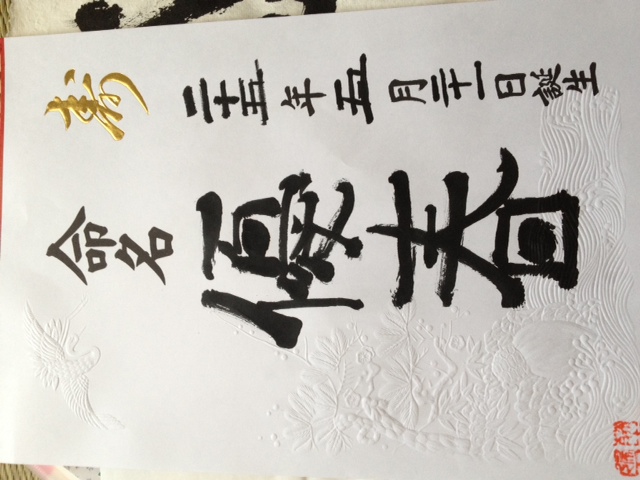 寿
二十五年五月二十一日誕生
命名
優春